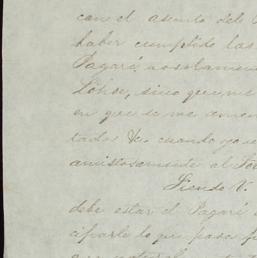 con el asunto del
haber cumplido las
Pagaré, no solamente
sino que me
en que se me
tados &c. cuando ya se
amistosamente al
Siendo V.
debe estar el Pagaré
ciparle lo que pasa